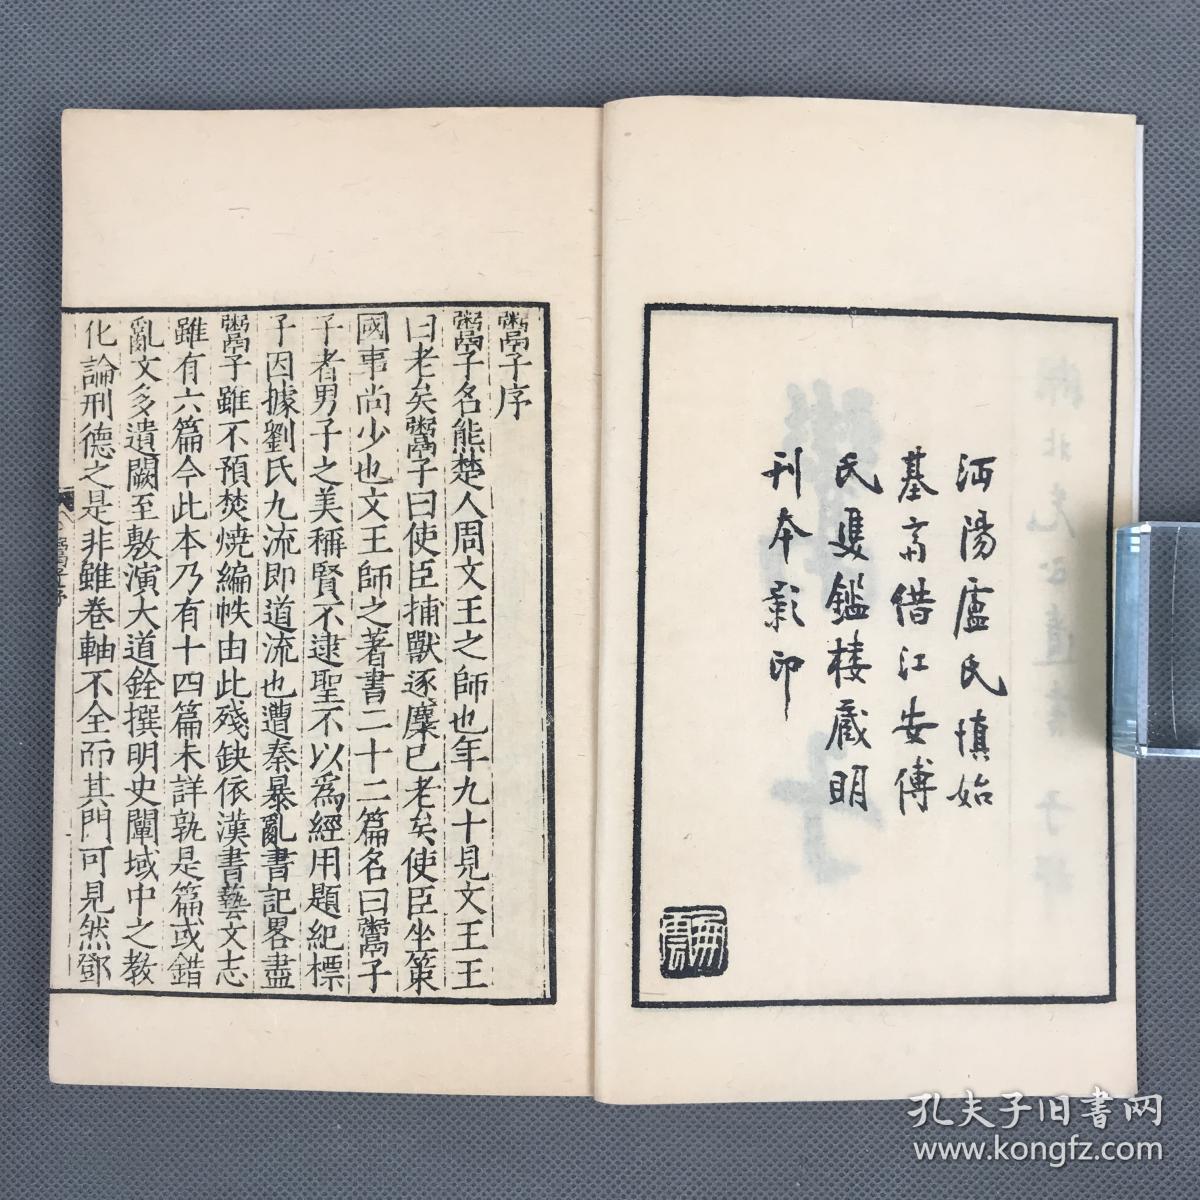 沔陽盧氏慎始
基齋借江安傅
氏雙鑑樓藏明
刊本影印
鬻子序
鬻子名熊楚人周文王之師也年九十見文王王
曰老矣鬻子曰使臣捕獸逐麋已老矣使臣坐策
國事尚少也文王師之著書二十二篇名曰鬻子
子者男子之美稱賢不逮聖不以爲經用題紀標
子因據劉氏九流即道流也遭秦暴亂書記畧盡
鬻子雖不預焚燒編帙由此殘缺依漢書藝文志
雖有六篇今此本乃有十四篇未詳孰是篇或錯
亂文多遺闕至敷演大道銓撰明史闡域中之教
化論刑德之是非雖卷軸不全而其門可見然鄧
鬻子序
孔夫子旧書网
www.kongfz.com